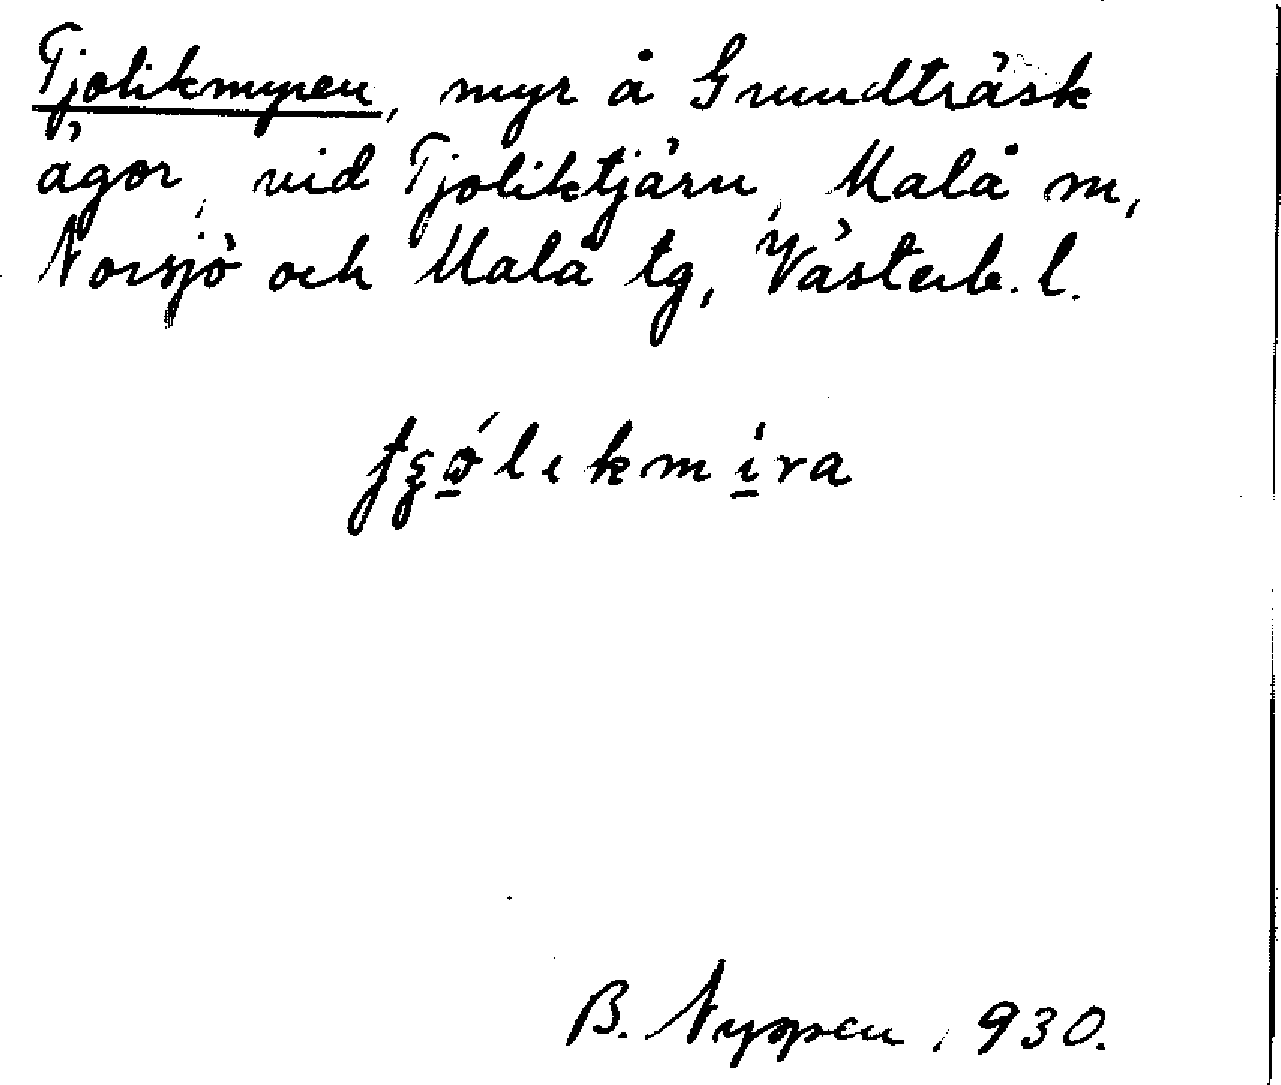 Tjolikmyren, myr å Grundträsk
ägor, vid Tjoliktjärn, Malå sn,
Norsjö och Malå tg, Västerb. l.
B. Nyppen, 930.